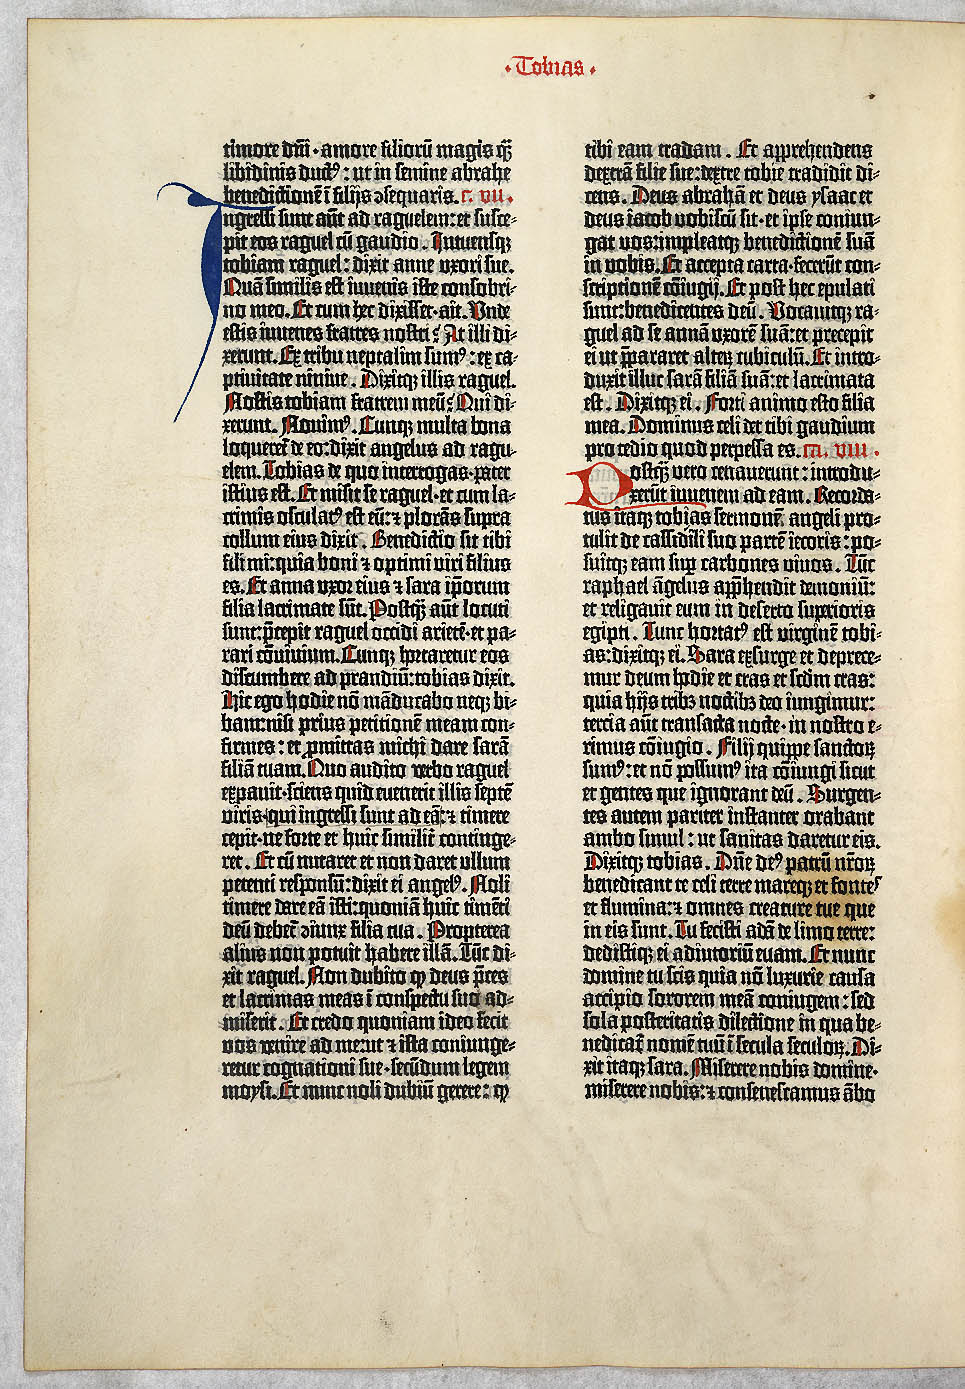 ·Tobias·
timore dñi·amore filiorū magis q̄
libidinis duct⁹: ut in semine abrahe
benedictionē ī filijs ↄsequaris. c. vii.
Ingressi sunt aūt ad raguelem:et susce-
pit eos raguel cū gaudio. Intuensqꝫ
tobiam raguel: dixit anne uxori sue.
Quā similis est iuvenis iste consobri-
no meo. Et cum hec dixisset·ait. Unde
estis iuvenes fratres nostri? At illi di-
xerunt. Ex tribu neptalim sum⁹: ex ca-
ptivitate ninive. Dixitqꝫ illis raguel.
Nostis tobiam fratrem meū? Qui di-
xerunt. Novim⁹. Cumqꝫ multa bona
loqueret̄ de eo: dixit angelus ad ragu-
elem. Tobias de quo interrogas·pater
istius est. Et misit se raguel·et cum la-
crimis osculat⁹ est eū: ⁊ plorās supra
collum eius dixit. Benedictio sit tibi
fili mi: quia boni ⁊ optimi viri filius
es. Et anna uxor eius ⁊ sara ip̄orum
filia lacrimate sūt. Postq̄ꝫ aūt locuti
sunt: p̄cepit raguel occidi arietē·et pa-
rari cōvivium. Cumqꝫ hortaretur eos
discumbere ad prandiū: tobias dixit.
Hic ego hodie nō māducabo neqꝫ bi-
bam: nisi prius petitionē meam con-
firmes: et ꝓmittas michi dare sarā
filiā tuam. Quo audito verbo raguel
expavit·sciens quid evenerit illis septē
viris·qui ingressi sunt ad eā: ⁊ timere
cepit·ne forte et huic similit̄ continge-
ret. Et cū nutaret et non daret ullum
petenti responsū: dixit ei angel⁹. Noli
timere dare eā isti: quoniā huic timēti
deū debet̄ ↄiunx filia tua. Propterea
alius non potuit habere illā. Tūc di-
xit raguel. Non dubito qͥ deus p̄ces
et lacrimas meas ī conspectu suo ad-
miserit. Et credo quoniam ideo fecit
vos venire ad me:ut ⁊ ista coniunge-
retur cognationi sue·secūdum legem
moysi. Et nunc noli dubiū gerere: qͥ
tibi eam tradam. Et apprehendens
dextrā filie sue: dextre tobie tradidit di-
cens. Deus abrahā et deus ysaac et
deus iacob vobiscū sit·et ipse coniun-
gat vos:impleatqꝫ benedictionē suā
in vobis. Et accepta carta·fecerūt con-
scriptionē cōiugij. Et post hec epulati
sunt: benedicentes deū. Vocavitqꝫ ra-
guel ad se annā uxorē suā: et precepit
ei ut p̄pararet alterꝫ cubiculū. Et intro-
duxit illuc sarā filiā suā: et lacrimata
est. Dixitqꝫ ei. Forti animo esto filia
mea. Dominus celi det tibi gaudium
pro tedio quod perpessa es. ca. viii.
Postq̄ꝫ vero cenaverunt: introdu-
xerūt iuvenem ad eam. Recorda-
tus itaqꝫ tobias sermonē angeli pro-
tulit de cassidili suo partē iecoris: po-
suitqꝫ eam suꝑ carbones vivos. Tūc
raphael āgelus app̄hendit demoniū:
et religavit eum in deserto superioris
egipti. Tunc hortat⁹ est virginē tobi-
as: dixitqꝫ ei. Sara exsurge et deprece-
mur deum hodie et cras et scd̄m cras:
quia hijs tribꝫ noctibꝫ deo iungimur:
tercia aūt transacta nocte·in nostro e-
rimus cōiugio. Filij quippe sanctoꝝ
sum⁹: et nō possum⁹ ita cōiungi sicut
et gentes que ignorant deū. Surgen-
tes autem pariter instanter orabant
ambo simul: ut sanitas daretur eis.
Dixitqꝫ tobias. Dn̄e de⁹ patrū nr̄oꝝ
benedicant te celi terre mareqꝫ et fontes
et flumina: ⁊ omnes creature tue que
in eis sunt. Tu fecisti adā de limo terre:
dedistiqꝫ ei adiutoriū evam. Et nunc
domine tu scis quia nō luxurie causa
accipio sororem meā coniugem: sed
sola posteritatis dilectione in qua be-
nedicat̄ nomē tuū ī secula seculoꝝ. Di-
xit itaqꝫ sara. Miserere nobis domine·
miserere nobis: ⁊ consenescamus ābo